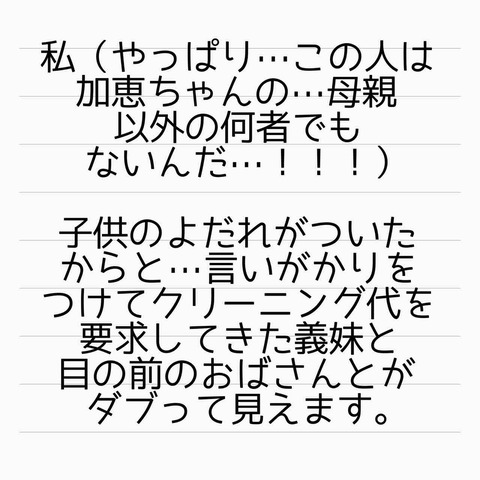 私（やっぱり…この人は
加恵ちゃんの…母親
以外の何者でも
ないんだ…！！！）
子供のよだれがついた
からと…言いがかりを
つけてクリーニング代を
要求してきた義妹と
目の前のおばさんとが
ダブって見えます。